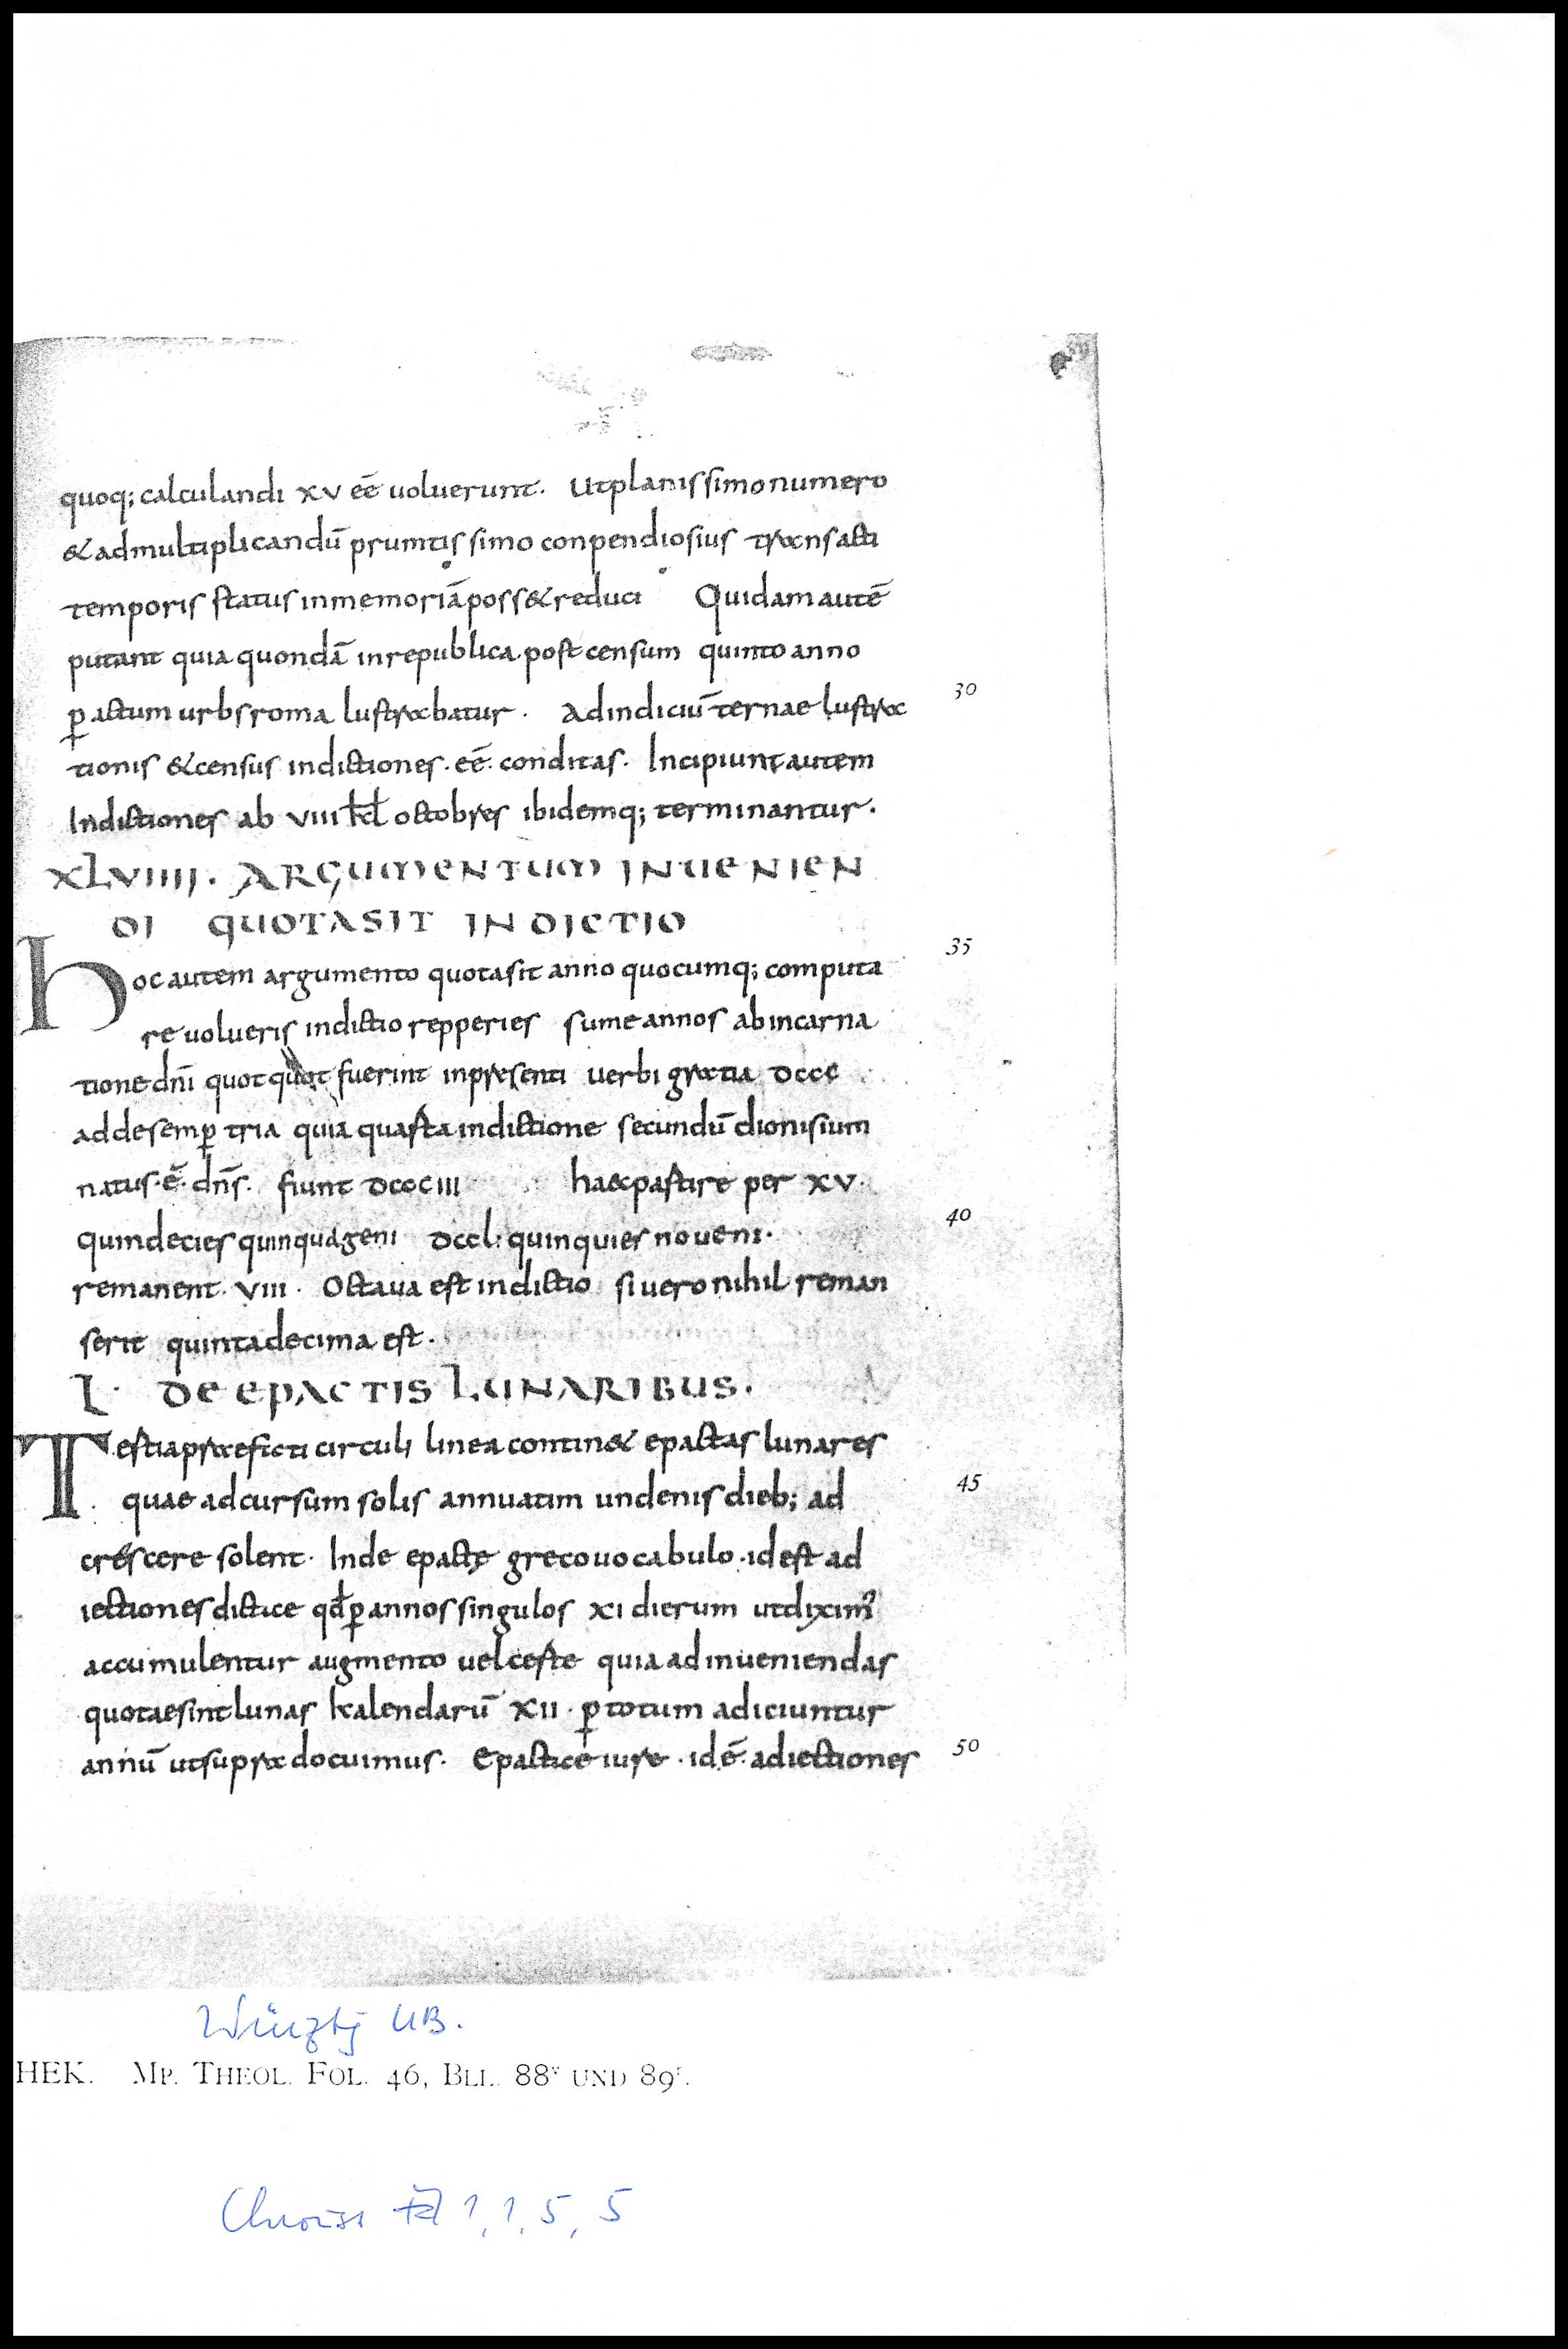 quoq; calculandi xv eē uoluerunt. Utplanissimonumero
& admultiplicandū prumtissimo conpendiosius transacti
temporis status inmemoriā poss& reduci Quidam autē
putant quia quondā inrepublica post censum quinto anno
30
ꝑactum urbs roma lustrabatur. Adindiciū ternae lustra
tionis &census indictiones. eē. conditas. Incipiunt autem
Indictiones ab VIII kł octobres ibidemq; terminantur.
XLVIIII. ARGUMENTUM INUENIEN
DI QUOTASIT INDICTIO
35
Hoc autem argumento quotasit anno quocumq; computa
re uolueris indictio repperies sume annos abincarna
tione dn̄i quotquot fuerint inpresenti uerbi gratia DCCC
addesemꝑ tria quia quarta indictione secundū dionisium
natus. ē. dn̄s. fiunt DCCCIII haec partire per XV.
40
quindecies quinquageni DCCL. quinquies noueni.
remanent. VIII. Octaua est indictio si uero nihil reman
serit quintadecima est.
L. DE EPACTIS LUNARIBUS.
Tertia praeficti circuli linea contin& epactas lunares
45
quae adcursum solis annuatim undenis dieb; ad
crescere solent. Inde epactę greco uocabulo. id est ad
iectiones dictice qđ ꝑ annos singulos XI dierum utdiximꝰ
accumulentur augmento uel certe quia ad inueniendas
quotaesint lunas kalendarū XII. ꝑ totum adiciuntur
50
annū utsupra docuimus. Epactice iure. id ē. adiectiones
UB.
HEK. MP. THEOL. FOL. 46, BLL. 88ᵛ UND 89ʳ.
1, 1, 5, 5